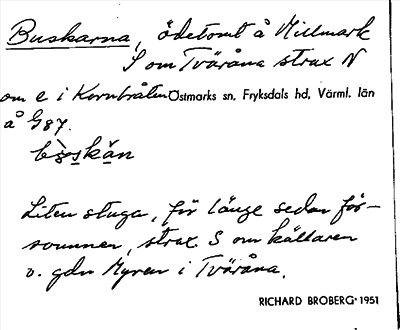 Buskarna, ödetomt å Millmark
S om Tväråna strax N
om e i Kornbråten Östmarks sn, Fryksdals hd, Värml. län
å G87.
Liten stuga, för länge sedan för-
svunnen, strax S om källaren
v. gdn Myren i Tväråna.
RICHARD BROBERG 1951